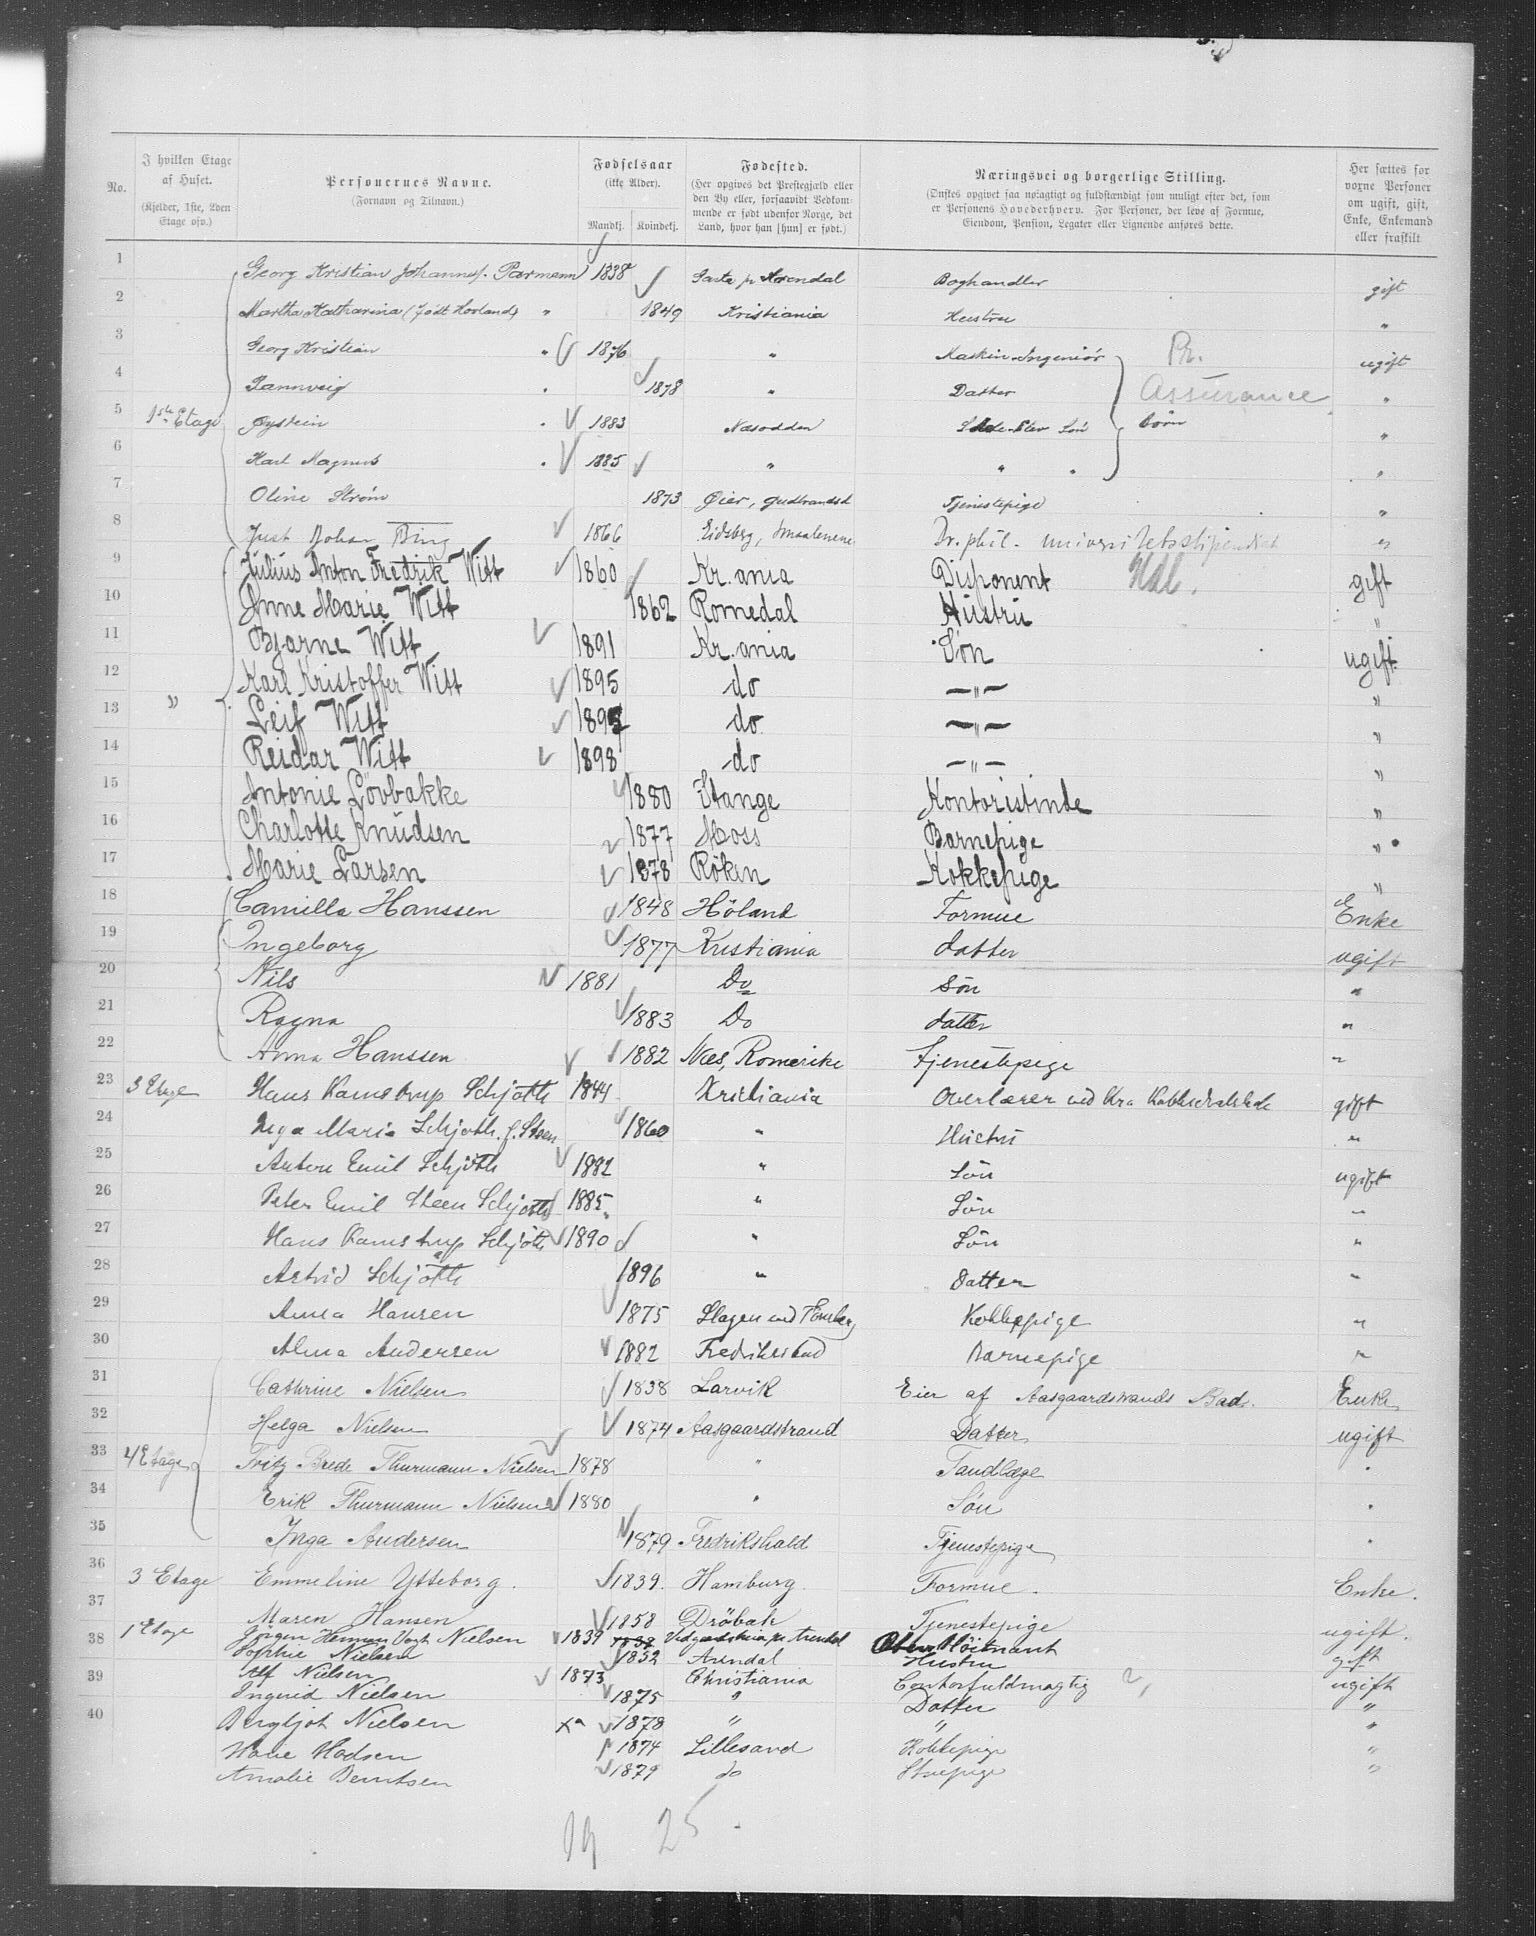 No. | I hvilken Etage af Huset. (Kjelder, 1ste, 2den Etage osv.) | Personernes Navne. (Fornavn og Tilnavn.) | Fødselsaar (ikke Alder). Mandkj. Kvindekj. | Fødested. (Her opgives det Prestegjæld eller den By eller, forsaavidt Vedkommende er født udenfor Norge, det Land, hvor han [hun] er født.) | Næringsvei og borgerlige Stilling. (Ønskes opgivet saa nøiagtigt og fuldstændigt som muligt efter det, som er Personens Hovederhverv. For Personer, der leve af Formue, Eiendom, Pension, Legater eller Lignende anføres dette. | Her sættes for voxne Personer om ugift, gift, Enke, Enkemand eller fraskilt
1 Georg Kristian Johannes Parmann 1838 Arendal Boghandler gift
2 Martha Katharina (født Hovland) " 1849 Kristiania Hustru "
3 Georg Kristian " 1876 " Maskin-Ingeniør Pr. ugift
4 Rannveig " 1878 " Datter Assurance "
5 1ste Etage Øystein " 1883 Næsodden Elev Søn børn "
6 Karl Magnus " 1885 " " " "
7 Oline Strøm 1873 Øier, Gudbrandsd Tjenestepige "
8 Just Johan Bing 1866 Eidsberg, Smaalenene Dr. phil. universitetsstipendiat "
9 Julius Anton Fredrik Witt 1860 Kr.ania Disponent Hdl. gift
10 Anne Marie Witt 1862 Romedal Hustru "
11 Bjarne Witt 1891 Kr.ania Søn ugift
12 Karl Kristoffer Witt 1895 do —"— "
13 " Leif Witt 189 do —"— "
14 Reidar Witt 1898 do —"— "
15 Antonie Lövbakke 1880 Stange Kontoristinde "
16 Charlotte Knudsen 1877 Moss Barnepige "
17 Marie Larsen 1878 Röken Kokkepige "
18 Camilla Hanssen 1848 Höland Formue Enke
19 Ingeborg 1877 Kristiania datter ugift
20 Nils 1881 Do søn "
21 Ragna 1883 Do datter "
22 Anna Hanssen 1882 Næs, Romerike tjenestepige "
23 3 Etage Hans Kamstrup Schjøth 1844 Kristiania Overlærer ved Kra Kathedralskole gift
24 Inga Marie Schjøth f. Steen 1860 " Hustru "
25 Anton Emil Schjøth 1882 " Søn ugift
26 Peter Emil Steen Schjøth 1885 " Søn "
27 Hans Kamstrup Schjøth 1890 " Søn "
28 Astrid Schjøth 1896 " Datter "
29 Anna Hansen 1875 Slagen ved Tønsberg Kokkepige "
30 Alma Andersen 1882 Fredrikstad Barnepige "
31 Cathrine Nielsen 1838 Larvik Eier af Aasgaardstrands Bad. Enke
32 Helga Nielsen 1874 Aasgaardstrand Datter ugift
33 4 Etage Fritz Brede Thurmann Nielsen 1878 " Tandlæge "
34 Erik Thurmann Nielsen 1880 " Søn "
35 Inga Andersen 1879 Fredrikshald Tjenestepige "
36 3 Etage Emmeline Ytteborg. 1839. Hamburg. Formue. Enke.
37 Maren Hansen 1858 Dröbak Tjenestepige ugift.
38 1 Etage Jörgen Herman Vogt Nielsen 1839 Arendal Oberstløitnant gift
Sophie Nielsen 1852 Arendal Hustru
39 Alf Nielsen 1873 Christiania Contorfuldmægtig ugift
Ingrid Nielsen 1875 " Datter "
40 Bergljot Nielsen 1878 " " "
Madsen 1874 Lillesand Kokkepige "
Amalie Berntsen 1879 do Stuepige "
19 25.